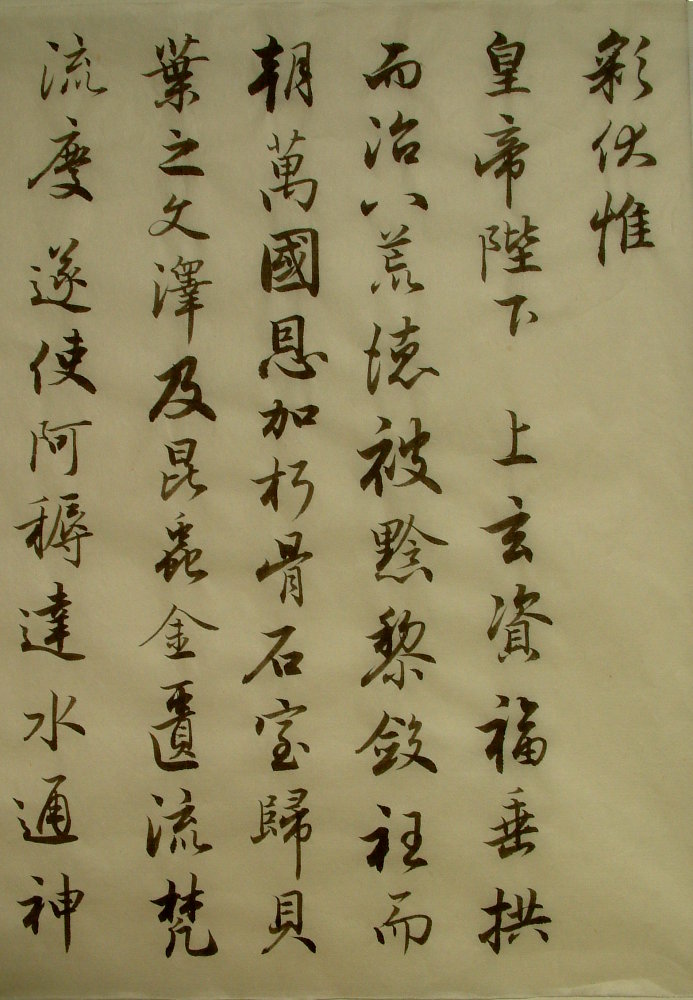 彩伏惟
皇帝陛下 上玄資福垂拱
而治八荒德被黔黎斂衽而
朝萬國恩加朽骨石室歸貝
葉之文澤及昆蟲金匱流梵
流度遂使阿耨達水通神